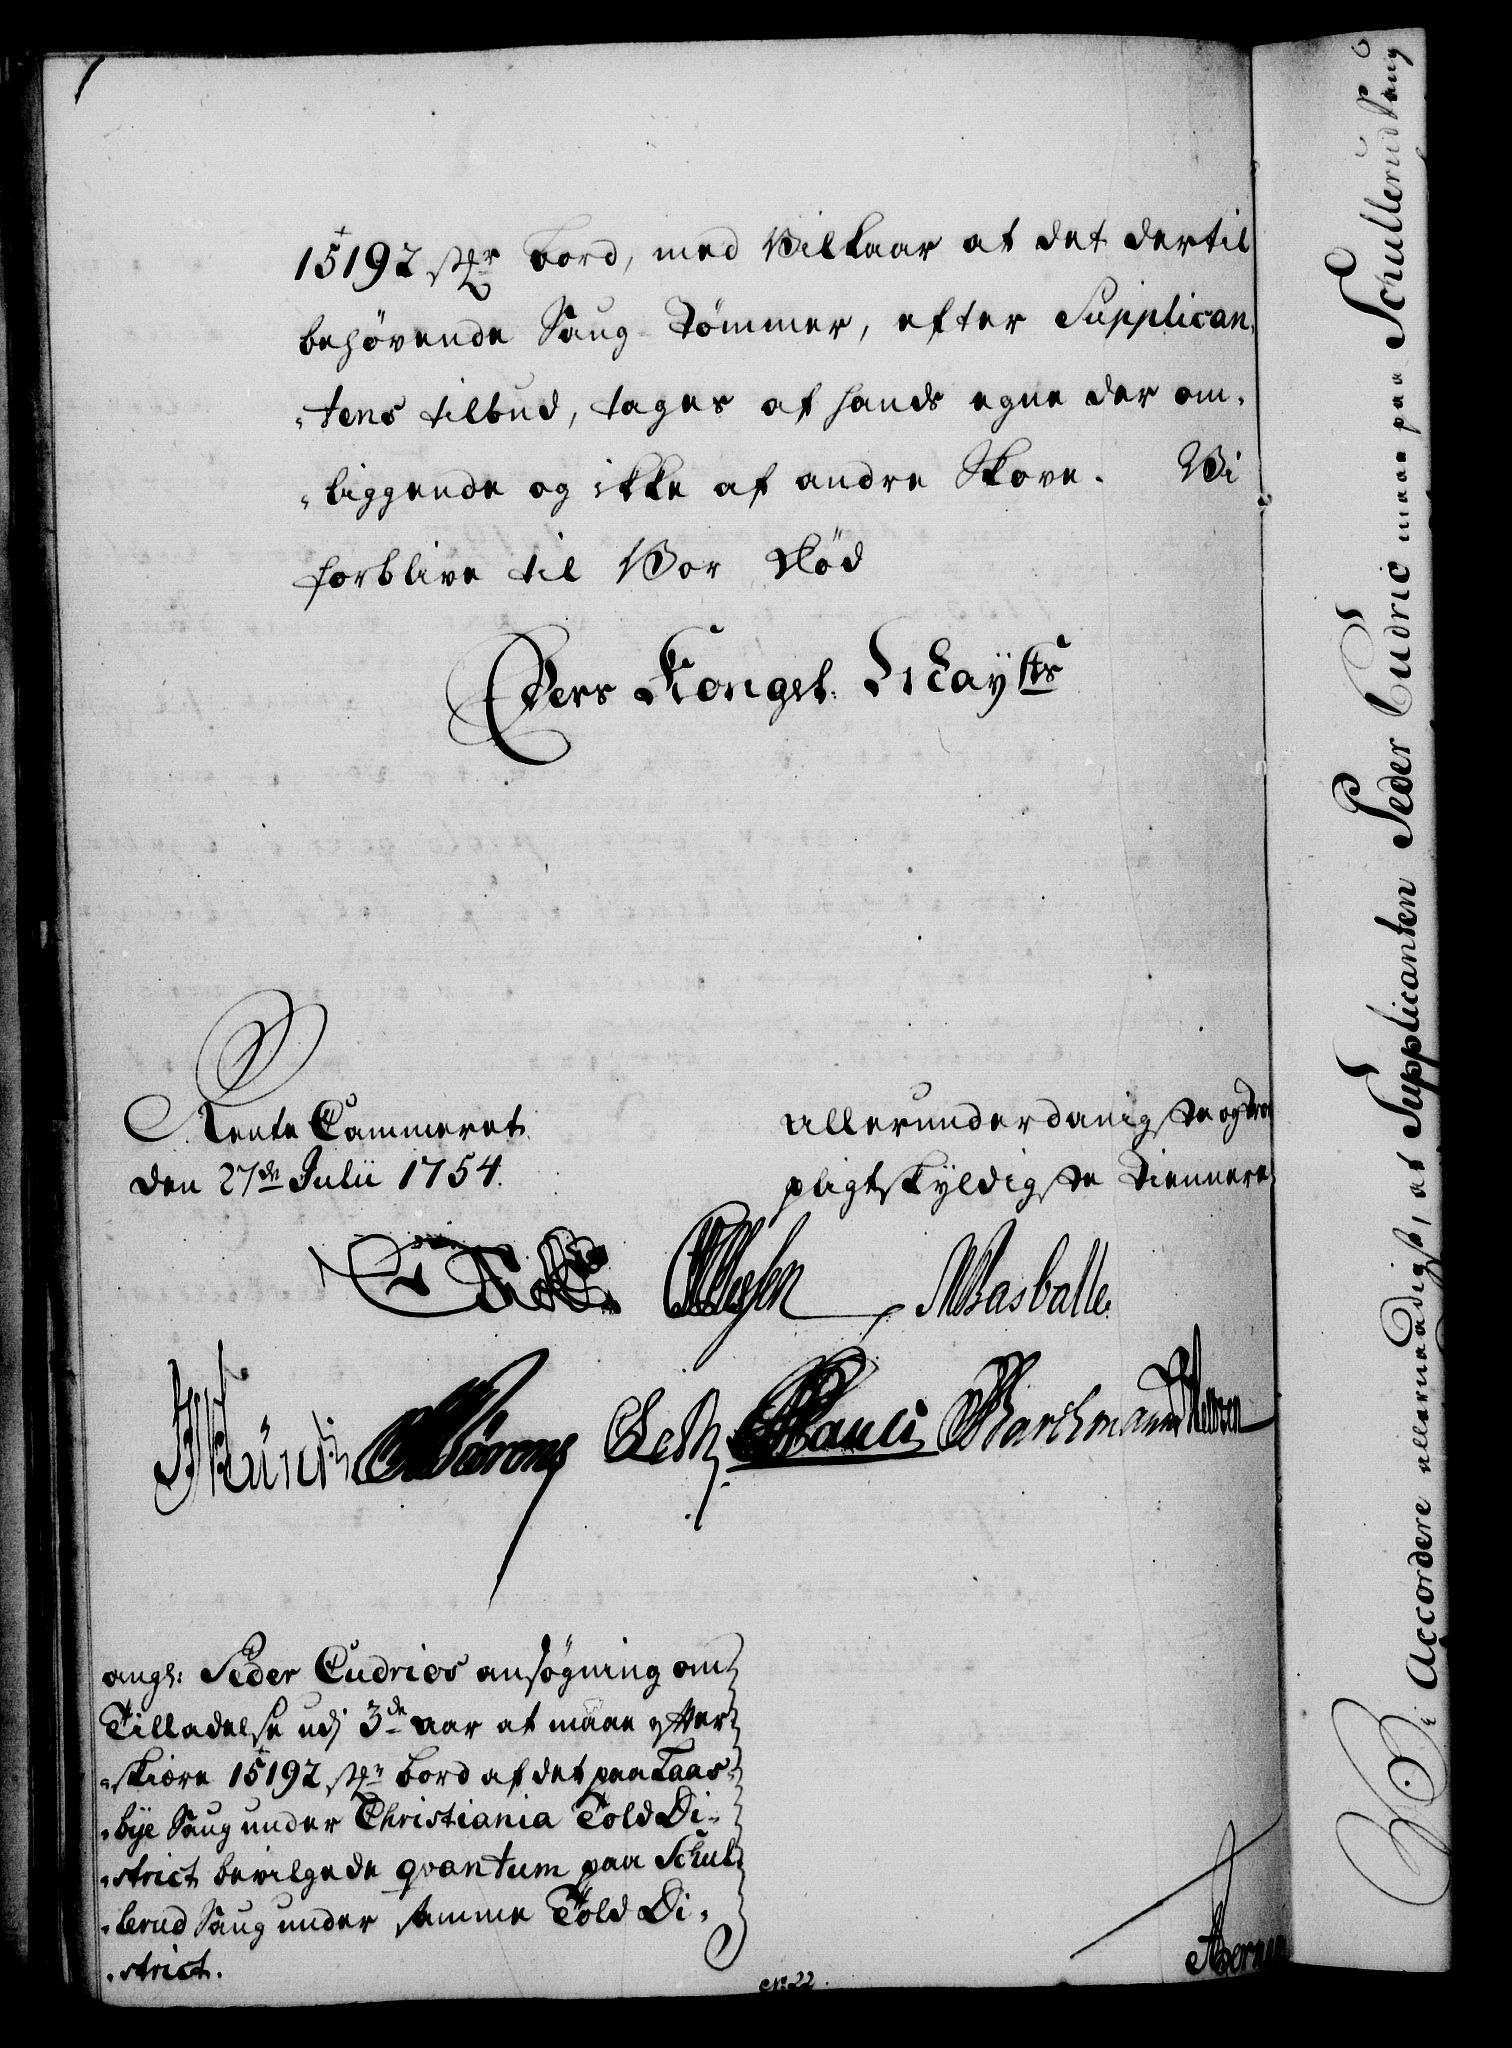 15192 stkr bord, med Vilkaar at det dertil
behövende Saug-Tömmer, efter Supplican-
-tens tilbud, tages af hands egne der om-
-liggende og ikke af andre Skove. Vi
forblive til Vor Död
Eders Kongel. Mayts
Rente Cammeret
den 27de Julii 1754.
allerunderdanigste og
pligtskyldigste Tiennere
Masballe
Pauli Barchmann
angl: Peder Cudrios ansögning om
Tilladelse udj 3de aar at maae
-skiære 15192 stkr bord af det paa Taas-
-bye Saug under Christiania Told Di-
-strict bevilgede qvantum paa Schul-
-lerud Saug under samme Told Di-
-strict.
No 22.
Vi Accordere allernaadigst, at Supplicanten Peder Cudrio maae paa Schullerud Saug